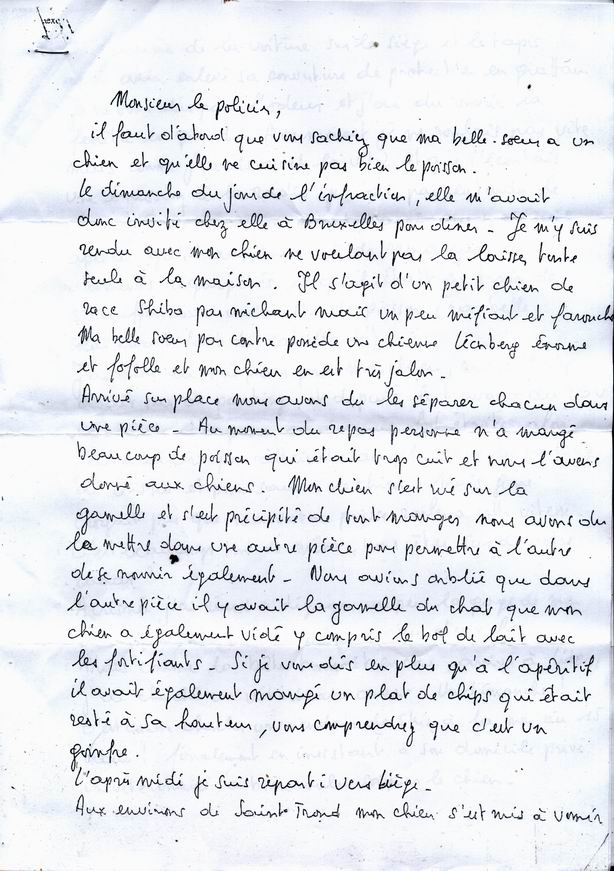 Monsieur le policier,
il faut d'abord que vous sachiez que ma belle-soeur a un
chien et qu'elle ne cuisine pas bien le poisson.
Le dimanche du jour de l'infraction, elle m'avait
donc invité chez elle à Bruxelles pour dîner - Je m'y suis
rendu avec mon chien ne voulant pas la laisser toute
seule à la maison. Il s'agit d'un petit chien de
race Shiba pas méchant mais un peu méfiant et farouche
Ma belle soeur par contre possède une chienne Léonberg énorme
et fofolle et mon chien en est très jaloux -
Arrivé sur place nous avons du les séparer chacun dans
une pièce - Au moment du repas personne n'a mangé
beaucoup de poisson qui était trop cuit et nous l'avons
donné aux chiens. Mon chien s'est rué sur la
gamelle et s'est précipité de tout manger nous avons du
le mettre dans une autre pièce pour permettre à l'autre
de se nourrir également - Nous avions oublié que dans
l'autre pièce il y avait la gamelle du chat que mon
chien a également vidé y compris le bol de lait avec
les fortifiants. Si je vous dis en plus qu'à l'apéritif
il avait également mangé un plat de chips qui était
resté à sa hauteur, vous comprendrez que c'est un
goinfre.
L'après midi je suis reparti vers Liège -
Aux environs de Saint-Trond mon chien s'est mis à vomir